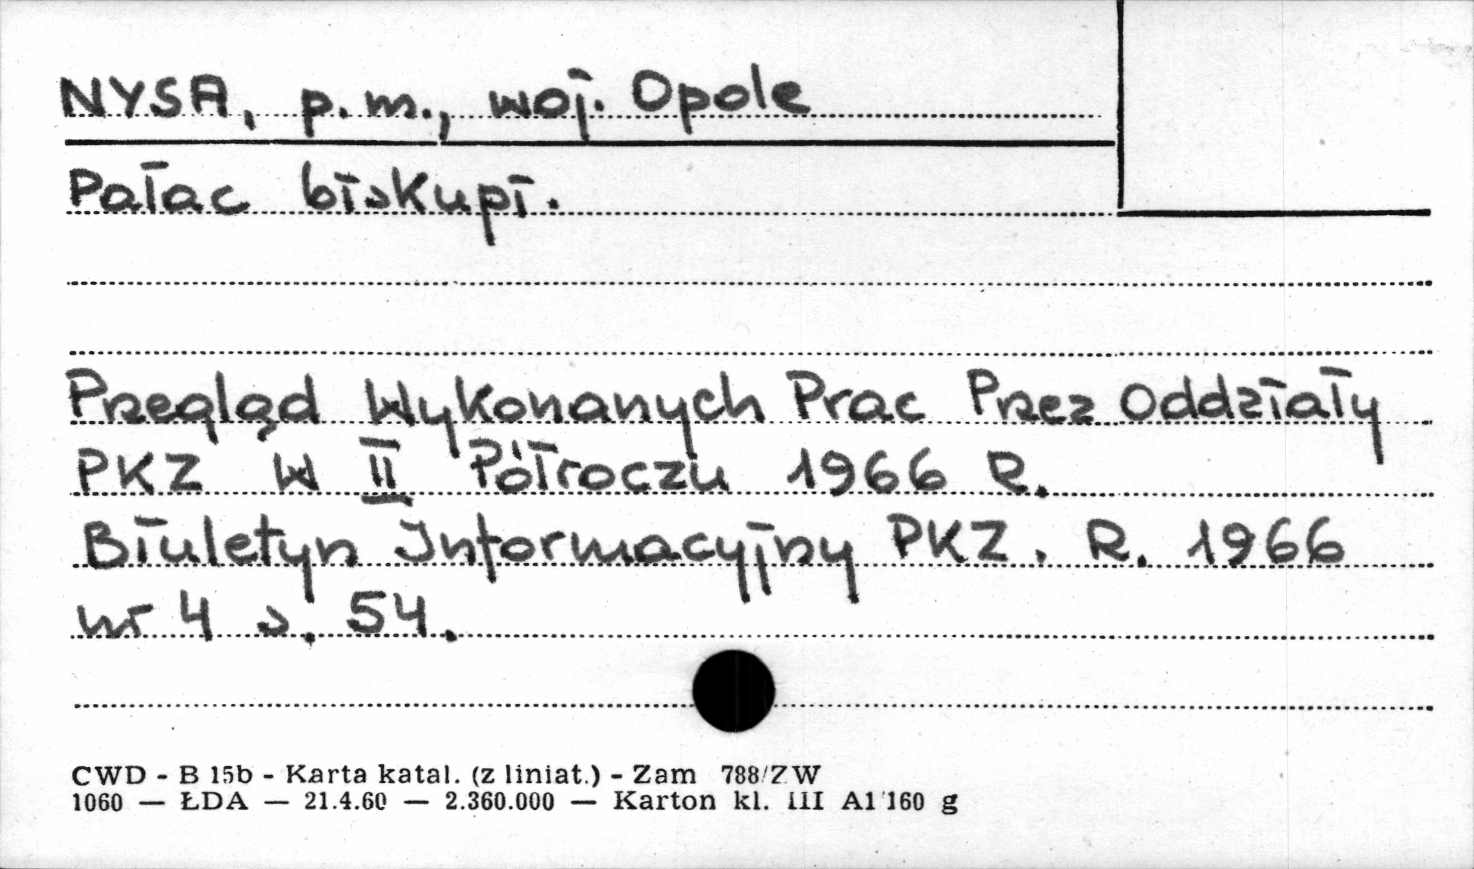 NYSA, p. m., woj. Opole
Pałac biskupi.
Przegląd Wykonanych Prac Przez Oddziały
PKZ W II Półroczu 1966 R.
Biuletyn Informacyjny PKZ. R. 1966
nr 4 s. 54.
CWD - B 15b - Karta katal. (z liniat.) - Zam 788/ZW
1060 — ŁDA — 21.4.60 — 2.360.000 — Karton kl. III A1 160 g